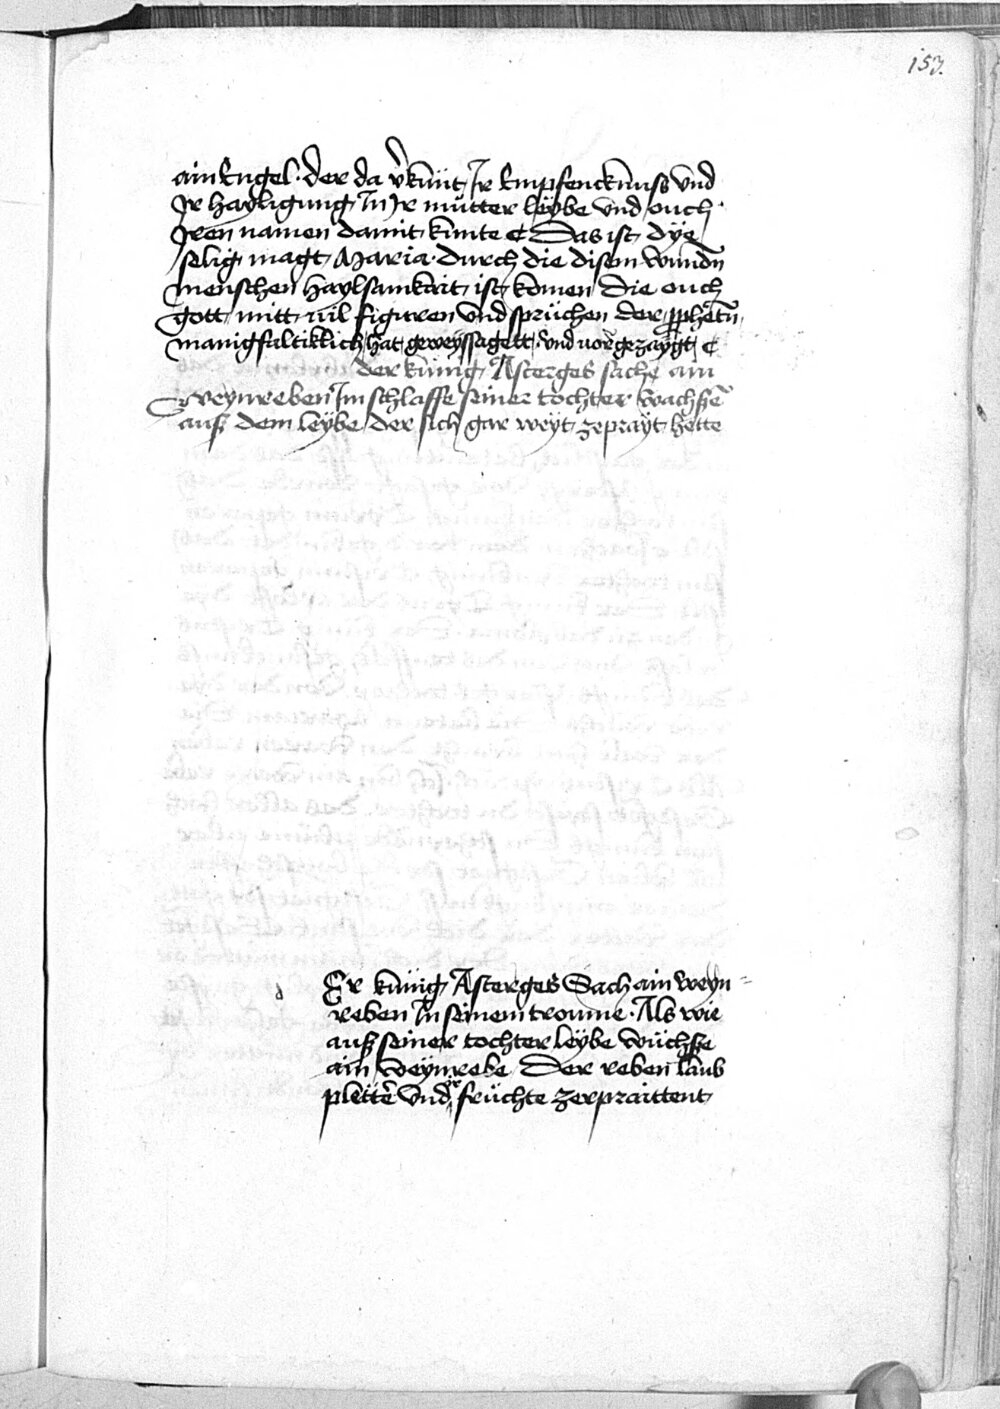 153.
ain Engel · der da v̾künt Ir Empfencknuss vnd
Ir hayligung In Ir mütter leybe vnd ouch
Iren namen damit kunte ₢ Das ist dÿe
selig magt Maria · durch die disem wundn̄
menschen haylsamkait ist komen die ouch
gott mitt uil figuren vnd sprüchen der ꝓphetn̄
manigfaltiklich hat geweyssagett vnd uorgezaÿgt ₢
der künig Asterges sache ain
weynreben Im schlaffe seiner tochter wachsē
auß dem leÿbe der sich gar weÿt zeprayt hette
d Er künig Asterges Sach ain weyn⸗
reben In seinem troume · Als wie
auß seiner tochter leÿbe wüchsse
ain weÿnrebe Der reben laub
plettē vnd ir früchte zerpraittent